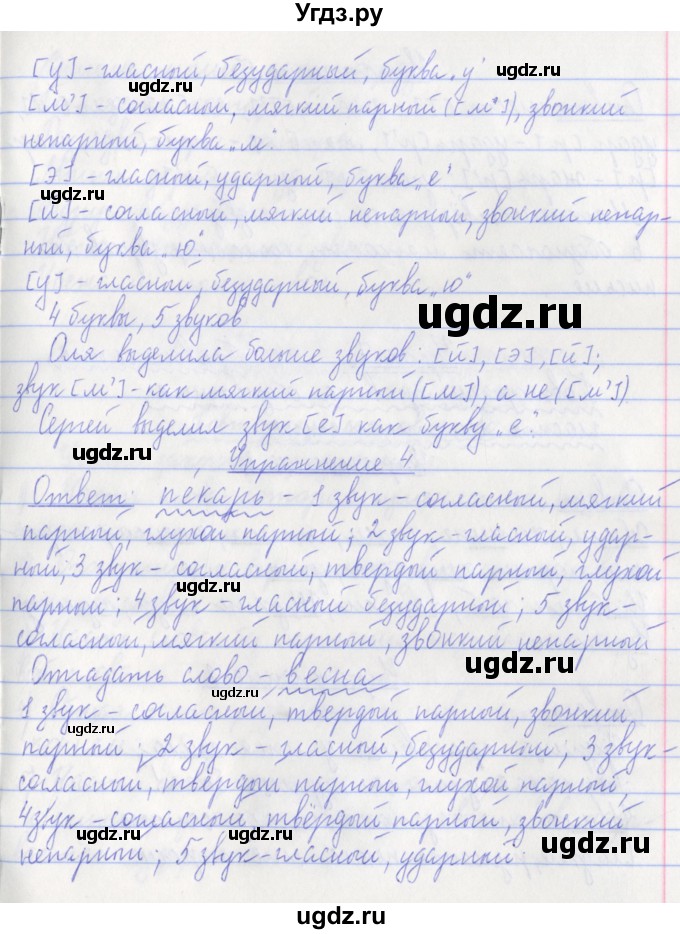 Угдз.ру
[у] - гласный, безударный, буква „у"
[м'] - согласный, мягкий парный ([м]), звонкий
непарный, буква „м"
[э] - гласный, ударный, буква „е"
[й] - согласный, мягкий непарный, звонкий непар-
ный, буква „ю".
[у] - гласный, безударный, буква „ю"
4 буквы, 5 звуков
Оля выделила больше звуков: [й], [э], [й];
звук [м'] - как мягкий парный ([м]), а не ([м'])
Сергей выделил звук [е] как букву „е".
Упражнение 4
Ответ: пекарь - 1 звук - согласный, мягкий
парный, глухой парный; 2 звук - гласный, удар-
ный; 3 звук - согласный, твердый парный, глухой
парный; 4 звук - гласный безударный; 5 звук -
согласный, мягкий парный, звонкий непарный
Отгадать слово - весна
1 звук - согласный, твердый парный, звонкий
парный; 2 звук - гласный, безударный; 3 звук -
согласный, твердый парный, глухой парный;
4 звук - согласный твёрдый парный, звонкий
непарный; 5 звук - гласной, ударный.
ugdz.ru